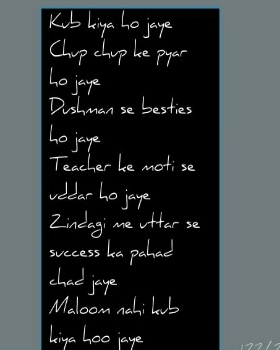 Kub kiya ho jaye
Chup chup ke pyar
ho jaye
Dushman se besties
ho jaye
Teacher ke moti se
uddar ho jaye
Zindagi me uttar se
success ka pahad
chad jaye
Maloom nahi kub
kiya hoo jaye